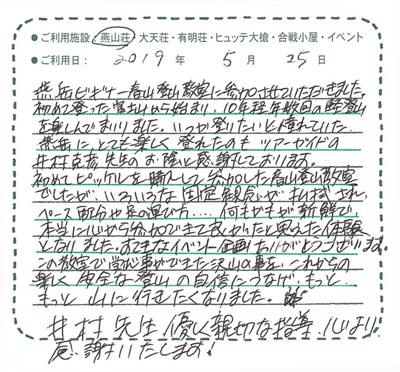 ●ご利用施設 燕山荘・大天荘・有明荘・ヒュッテ大槍・合戦小屋・イベント
●ご利用日： 2019 年 5 月 25 日
燕岳ビギナー春山登山教室に参加させていただきました。
初めて登った富士山から始まり、10年程年数回の軽登山
を楽しんでまいりました。いつか登りたいと憧れていた
燕岳に、とても楽しく登れたのもツアーガイドの
井村 先生のお陰と感謝しております。
初めてピッケルを購入して参加した春山登山教室
でしたが、いろいろな固定観念が払拭され、
ペース配分や足の運び方…. 何もかもが新鮮で、
本当に心から参加できて良かったと思えた体験
となりました。すてきなイベント企画ありがとうございます。
この教室で学ぶ事ができた沢山の事を、これからの
楽しく安全な登山の自信につなげ、もっと
もっと山に行きたくなりました。
井村先生 優しく親切な指導、心より
感謝いたします！